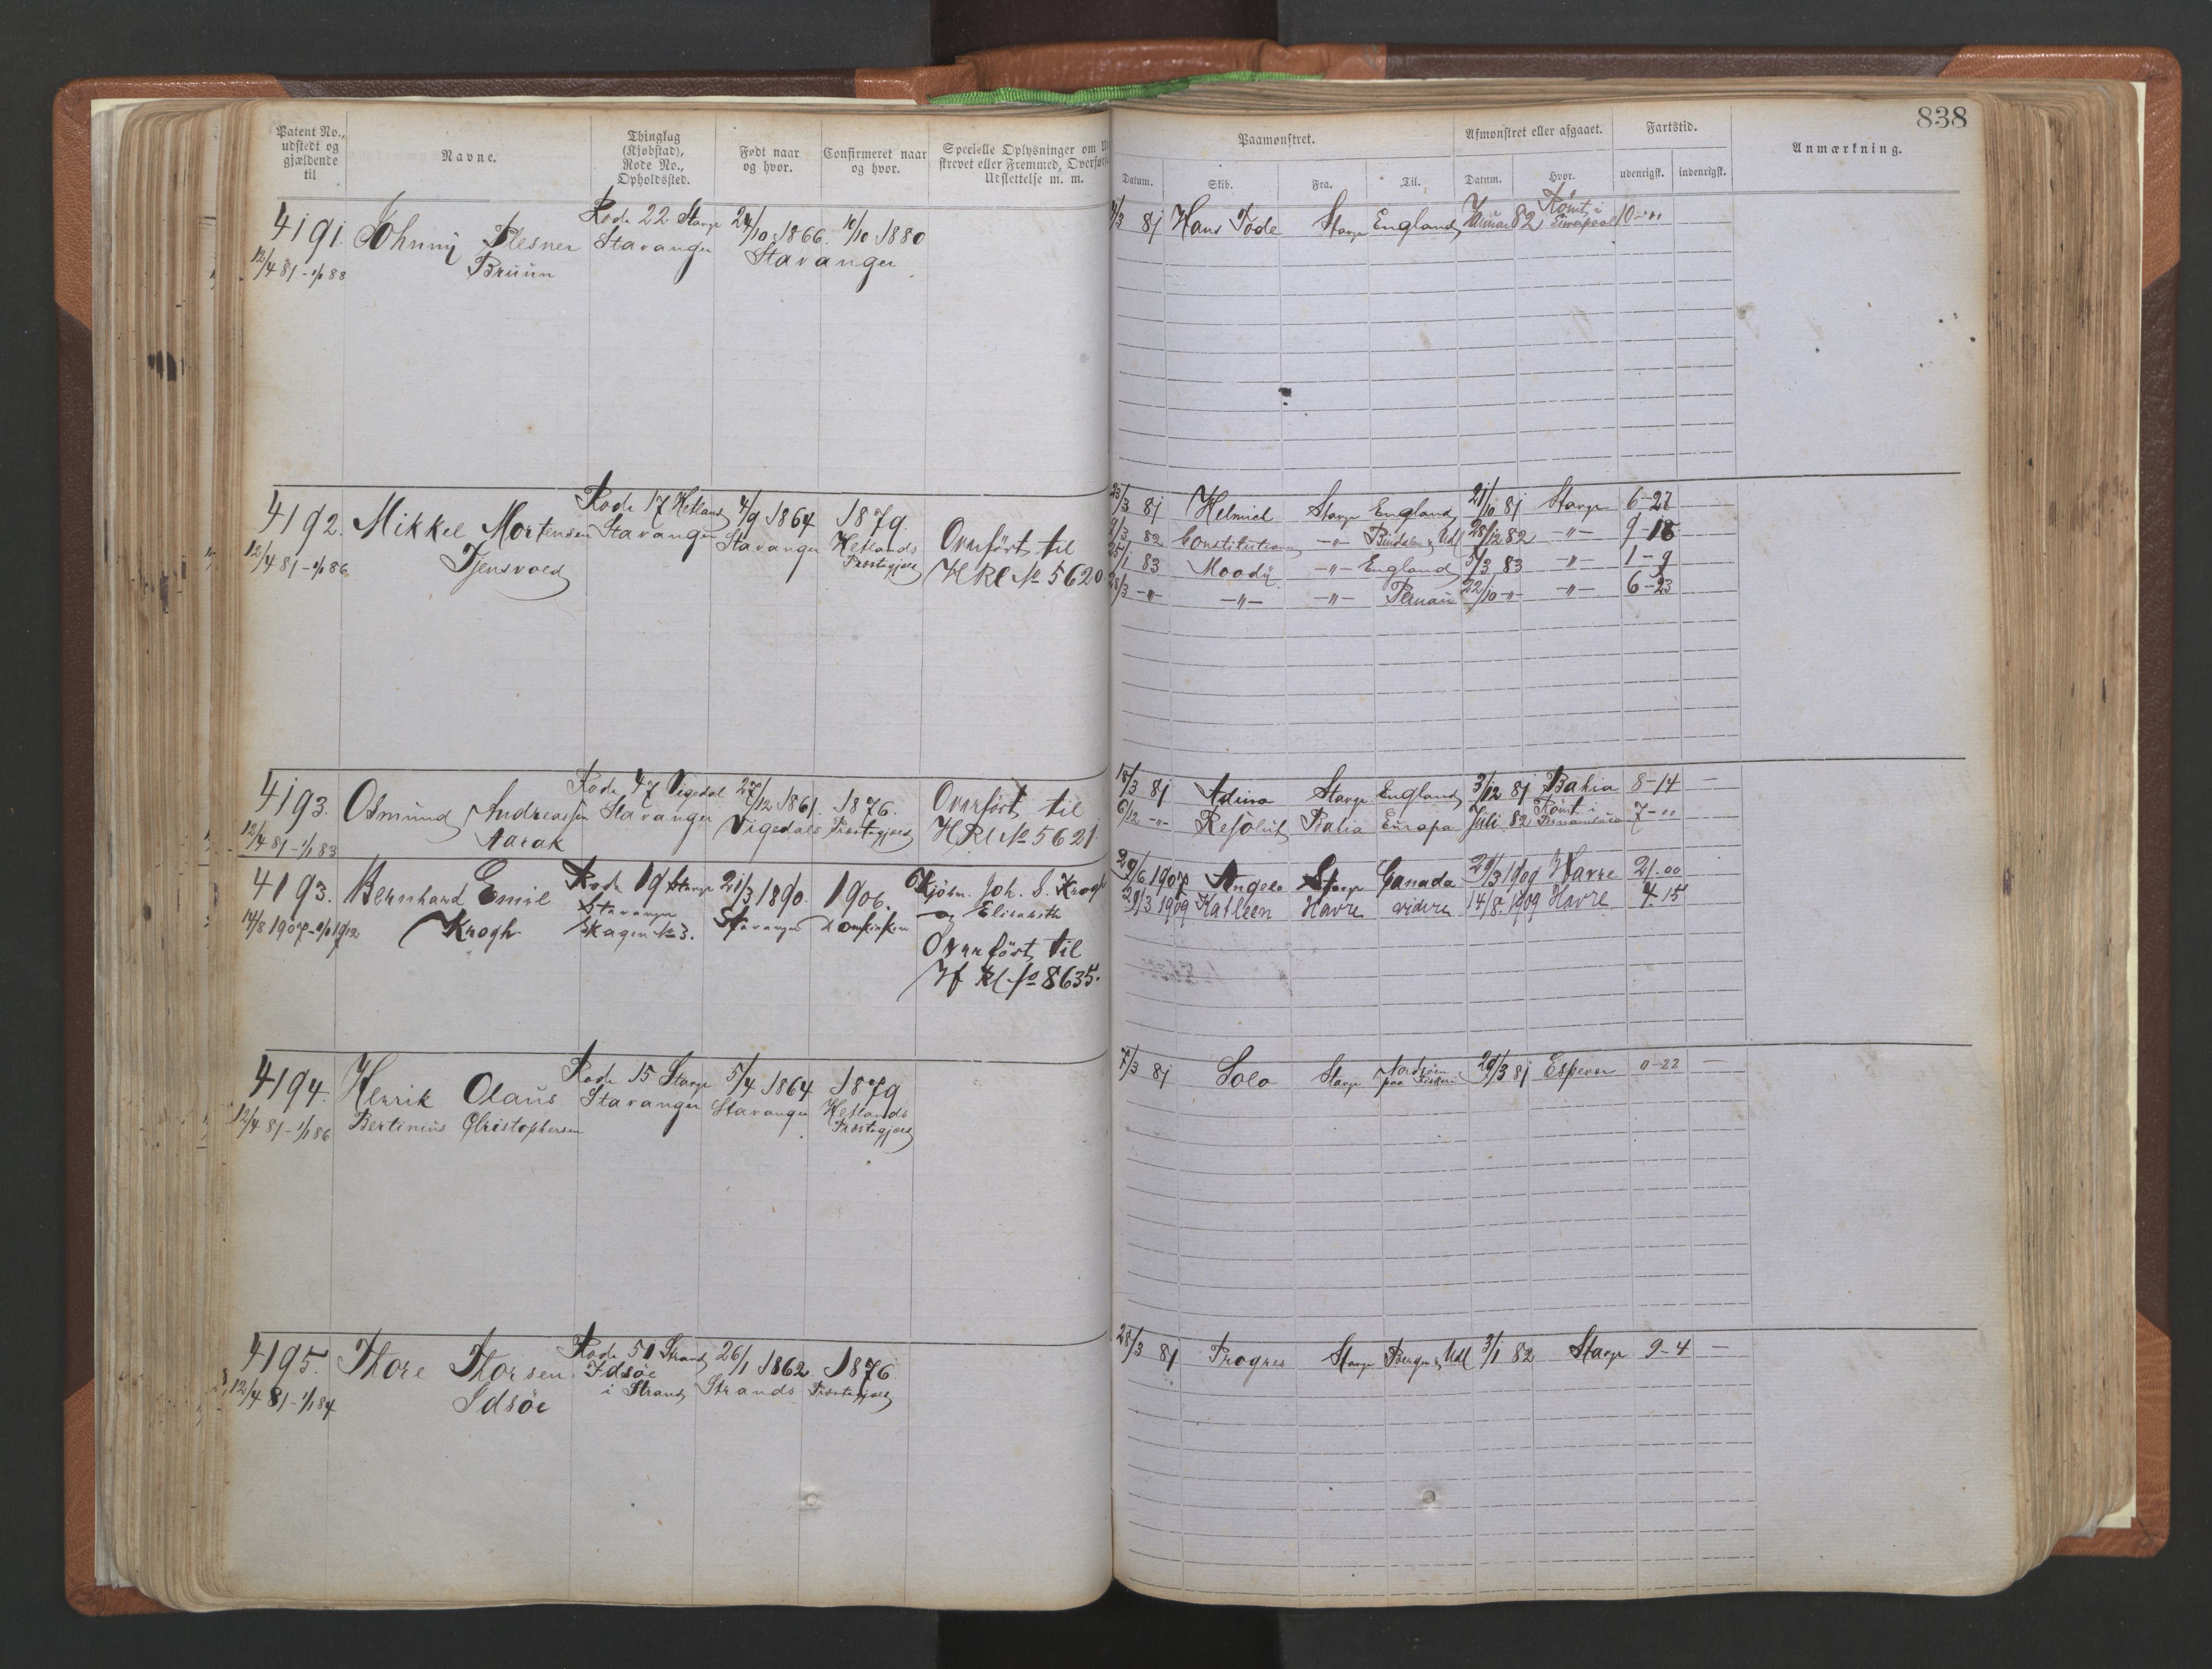 838
Patent No., udstedt og gjældende til
Navne.
Thinglag (Kjøbstad), Rode No., Opholdssted.
Født naar og hvor.
Confirmeret naar og hvor.
Specielle Oplysninger om
skrevet eller Fremmed, Overført
Udslettelse m. m.
Paamønstret.
Afmønstret eller afgaaet.
Fartstid.
Anmærkning.
Datum. Skib. Fra. Til. Datum. Hvor. udenrigsk. indenrigsk.
4191. Johnny Plesner Rode 22 Stavgr 24/10 1866. 10/10 1880
12/4 81 - 1/1 88 Bruun Stavanger Stavanger
/3 81 Hans Tode Stavgr England Januar 82 Römt i Liverpool 10-"
4192. Mikkel Mortensen Rode 17 Hetland 4/9 1864 1879.
12/4 81 - 1/1 86 Tjensvold Stavanger Stavanger Hetlands Præstegjæld
Overført til
HRl No 5620
23/3 81 Helmich Stavgr England 21/10 81 Stavgr 6-27
9/3 82 Constitutionen -"- Udl 28/12 82 -"- 9-18
25/1 83 Moody -"- England 5/3 83 -"- 1-9
28/3 -"- -"- -"- Pernau 22/10 -"- -"- 6-23
4193. Osmund Andreassen Rode 47 Vigedal 27/12 1861. 1876.
12/4 81 - 1/1 83 Aarak Stavanger Vigedals Præstegjæld
Overført til
HRl No 5621.
18/3 81 Adina Stavgr England 3/12 81 Bahia 8-14 —
6/12 -"- Resolut Bahia Europa Juli 82 Römt i Pernambuco 7-"
4193. Bernhard Emil Rode 19 Stavgr 21/3 1890. 1906.
14/8 1907 - 1/1 1912 Krogh Stavanger Skagen No 3. Stavanger Domkirken
Kjøbm. Joh. S. Krogh
og Elisabeth
Overført til
Hf Rl No 8635.
29/6 1907 Angelo Stavgr Canada 29/3 1909 Havre 21.00
29/3 1909 Kathleen Havre videre 14/8. 1909 Havre 4-15
4194. Henrik Olaus Rode 15 Stavgr 5/4 1864 1879
12/4 81 - 1/1 86 Bertinius Christophersen Stavanger Stavanger Hetlands Præstegjæld
7/3 81 Solo Stavgr Nordsöen paa Fiskeri 29/3 81 Espevær 0-22 —
4195. Thore Thorsen Rode 51 Strand 26/1 1862. 1876
12/4 81 - 1/1 84 Idsöe Idsöe i Strand Strands Præstegjæld
28/3 81 Progres Stavgr Bergen & Udl 3/1 82 Stavgr 9-4 —